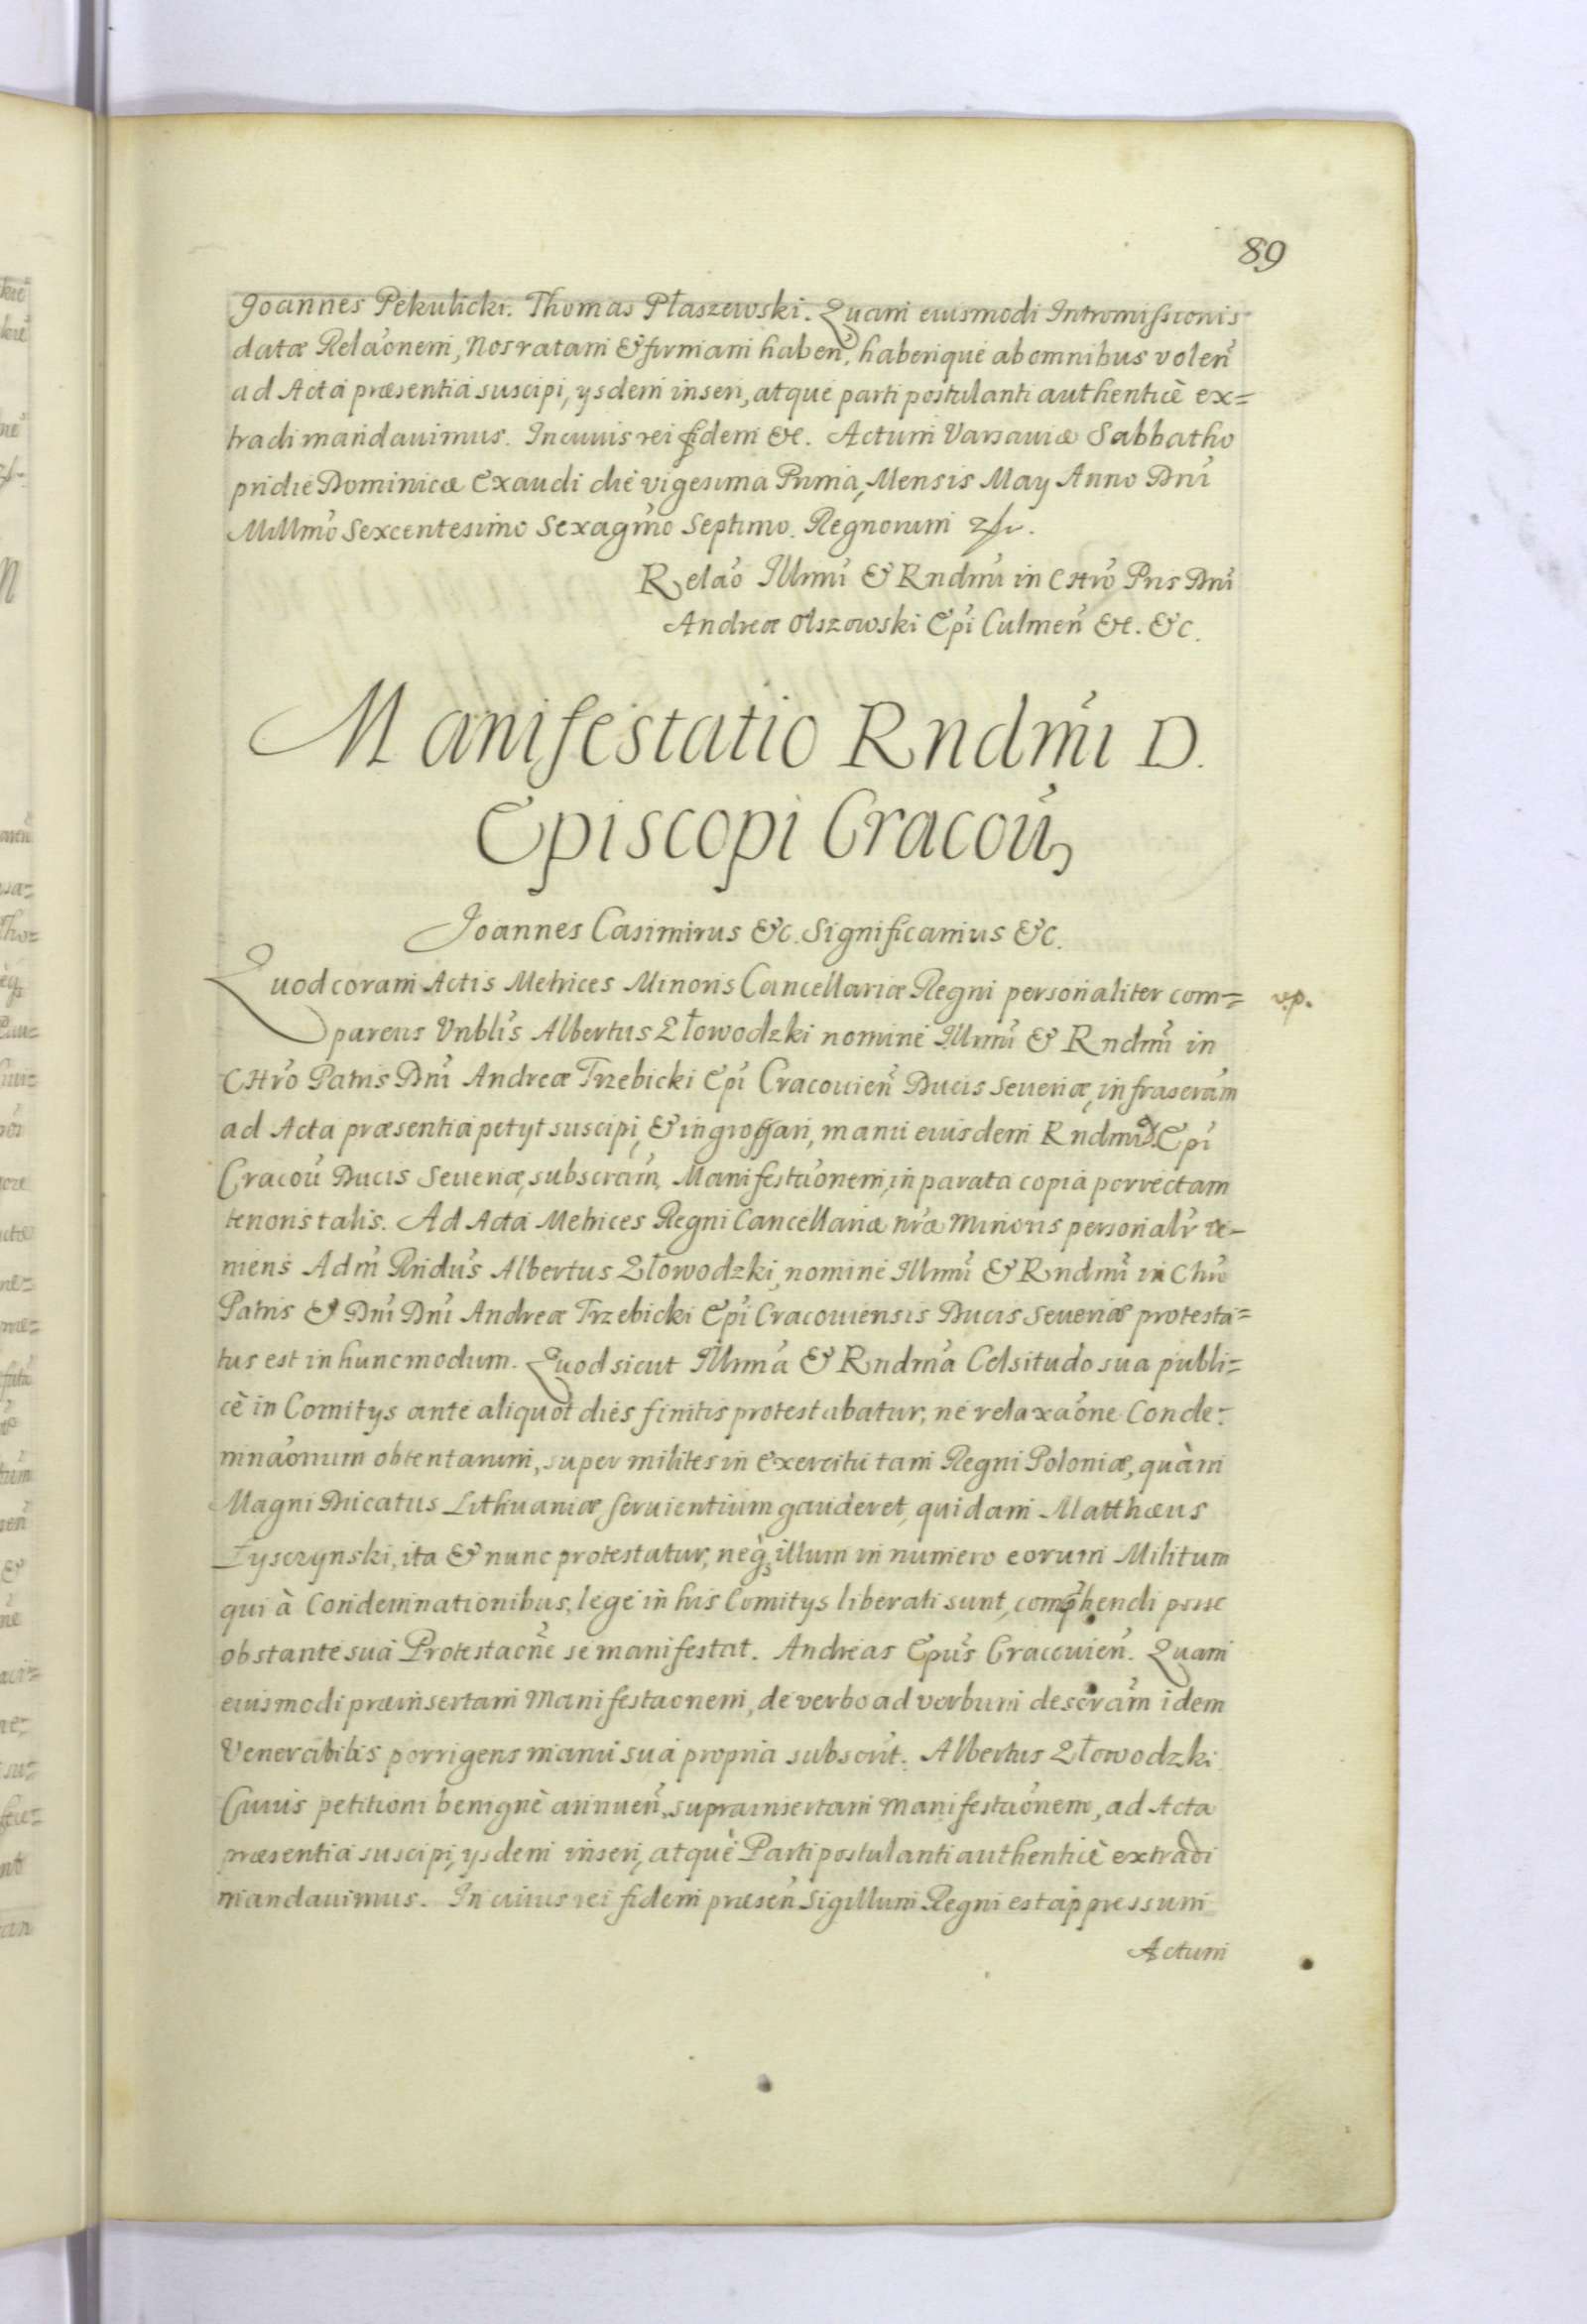 89
Joannes Pekulicki. Thomas Płaszewski. Quam eiusmodi Intromissionis
datæ Relaõnem, Nos ratam & firmam haben̄, haberique ab omnibus volen̄
ad Acta præsentia suscipi, ysdem inseri, atque parti postulanti authenticè ex=
tradi mandauimus. In cuius rei fidem &c. Actum Varsauiæ Sabbatho
pridie Dominicæ Exaudi die vigesima Prima, Mensis May Anno Dnī
Millm̄o Sexcentesimo Sexagm̄o Septimo. Regnorum
Relaõ Illmī & Rndmī in CHrō Pris Dnī
Andreæ Olszowski Epī Culmen̄ &c. &c.
Manifestatio Rndmī D.
Episcopi Cracou̅
Joannes Casimirus &c. Significamus &c.
Quod coram Actis Metrices Minoris Cancellariæ Regni personaliter com=
v.p.
parens Vnblīs Albertus Złowodzki nomine Illmī & Rndmī in
CHrō Patris Dnī Andreæ Trzebicki Epī Cracouien̄ Ducis Seueriæ, infrascrām̄
ad Acta præsentia petyt suscipi, & ingrossari, manu eiusdem Rndmī D. Epī
Cracou̅ Ducis Seueriæ, subscrām̄, Manifestaõnem, in parata copia porrectam
tenoris talis. Ad Acta Metrices Regni Cancellariæ nr̄æ Minoris personalr̄ ve=
niens Adm̄ Rndūs Albertus Złowodzki, nomine Illmī & Rndmī in Chrō
Patris & Dnī Dnī Andreæ Trzebicki Epī Cracouiensis Ducis Seueriæ protesta=
tus est in hunc modum. Quod sicut Illmā & Rndmā Celsitudo sua publi=
cè in Comitys ante aliquot dies finitis protestabatur, ne relaxaõne Conde=
mnaõnum obtentarum, super milites in exercitu tam Regni Poloniæ, quàm
Magni Ducatus Lithuaniæ seruientium gauderet, quidam Matthæus
Łysczynski, ita & nunc protestatur, neq̄ illum in numero eorum Militum
qui à Condemnationibus, lege in his Comitys liberati sunt, comp̄hendi posse
obstante sua Protestaone se manifestat. Andreas Epūs Cracouien̄. Quam
eiusmodi præinsertam Manifestaonem, de verbo ad verbum descrām̄ idem
Venerabilis porrigens manu sua propria subscrīt. Albertus Złowodzki
Cuius petitioni benignè annuen̄, suprainsertam Manifestaõnem, ad Acta
præsentia suscipi, ysdem inseri, atquè Parti postulanti authenticè extradi
mandauimus. In cuius rei fidem præsen̄ Sigillum Regni est appressum
Actum